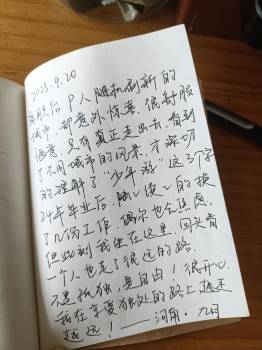 2025.9.20
P人随机刷新的
城市，都意外惊喜，很舒服
惬意，只有真正走出去，看到
了不同城市的风景，才深切
的理解了“少年游”这3个字
24年毕业后，的换
了几份工作，偶尔也会焦虑
但此刻我坐在这里，回头看
一个人也走了很远的路
不是孤独，是自由！很开心，
我在享受独处的路上越走
越远！——河南·